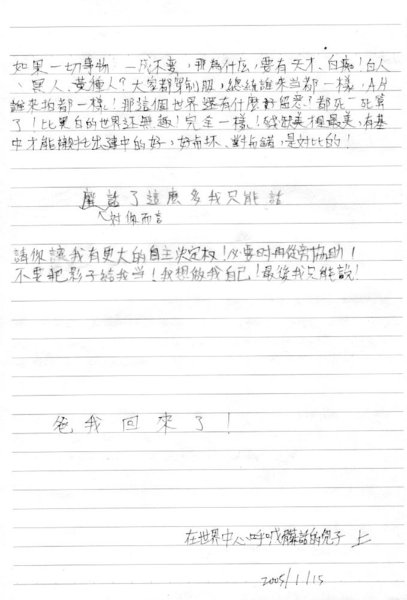 如果一切事物一成不變,那為什么,要有天才、白痴!白人
、黑人、黃種人?大家都穿制服,總統誰來當都一樣,AH
誰來拍都一樣!那這個世界還有什麼好留戀?都死一死算
了!比黑白的世界还無趣!完全一樣!殘缺美才是最美,有基
中才能襯托出建中的好,好与坏、對与錯,是対比的!
廢話了這麼多我只能話
对你而言
請你讓我有更大的自主決定权!必要時再從旁協助!
不要把影子給我當!我想做我自己!最後我只能說!
爸我回來了!
在世界中心呼喊 話的兒子 上
2005/1/15